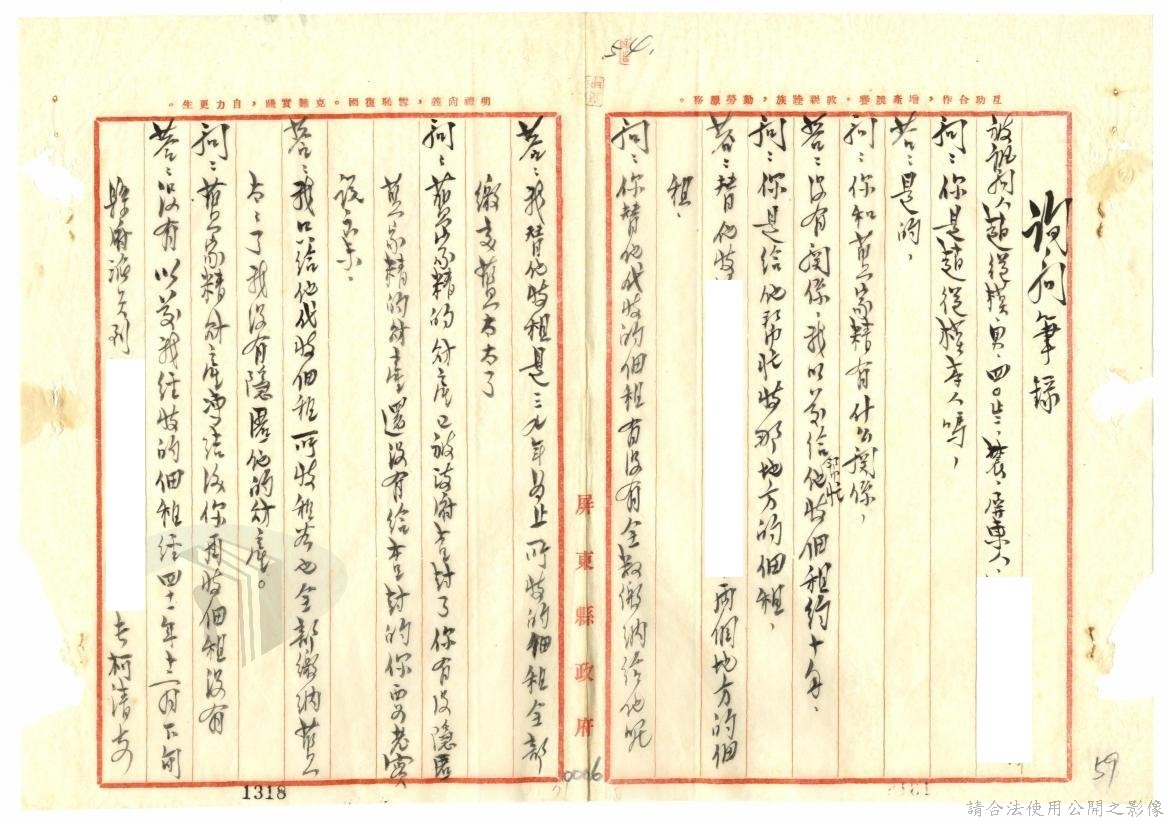 54.
互助合作，增產競賽。敦親睦族，動勞服務。
明禮向義，雪恥復國。克難實踐，自力更生。
詢問筆錄
被詢問人趙從樸 男、四〇歲、農、屏東人、
問：你是趙從樸本人嗎，
答：是的，
問：你和黃家精有什么關係，
答：沒有關係、我以前給他幫忙收佃租約十年、
問：你是給他帮忙收那地方的佃租，
答：替他收
兩個地方的佃
租、
問：你替他代收的佃租有沒有全数繳納給他呢
答：我替他收租是三九年為止所收的佃租全部
繳交黃太太了
問：黃家精的財產已被政府查封了你有沒隱匿
黃家精的財產還沒有給查封的你要老實
說出來、
答：我只給他代收佃租所收租谷也全部繳納黃
太太了我沒有隱匿他的財產。
問：黃家精財產凍結後你再收佃租沒有
答：沒有以前我經收的佃租經四十一年十二月下旬
縣府派員到
去柯清
屏東縣政府
0006
1318
59
請合法使用公開之影像